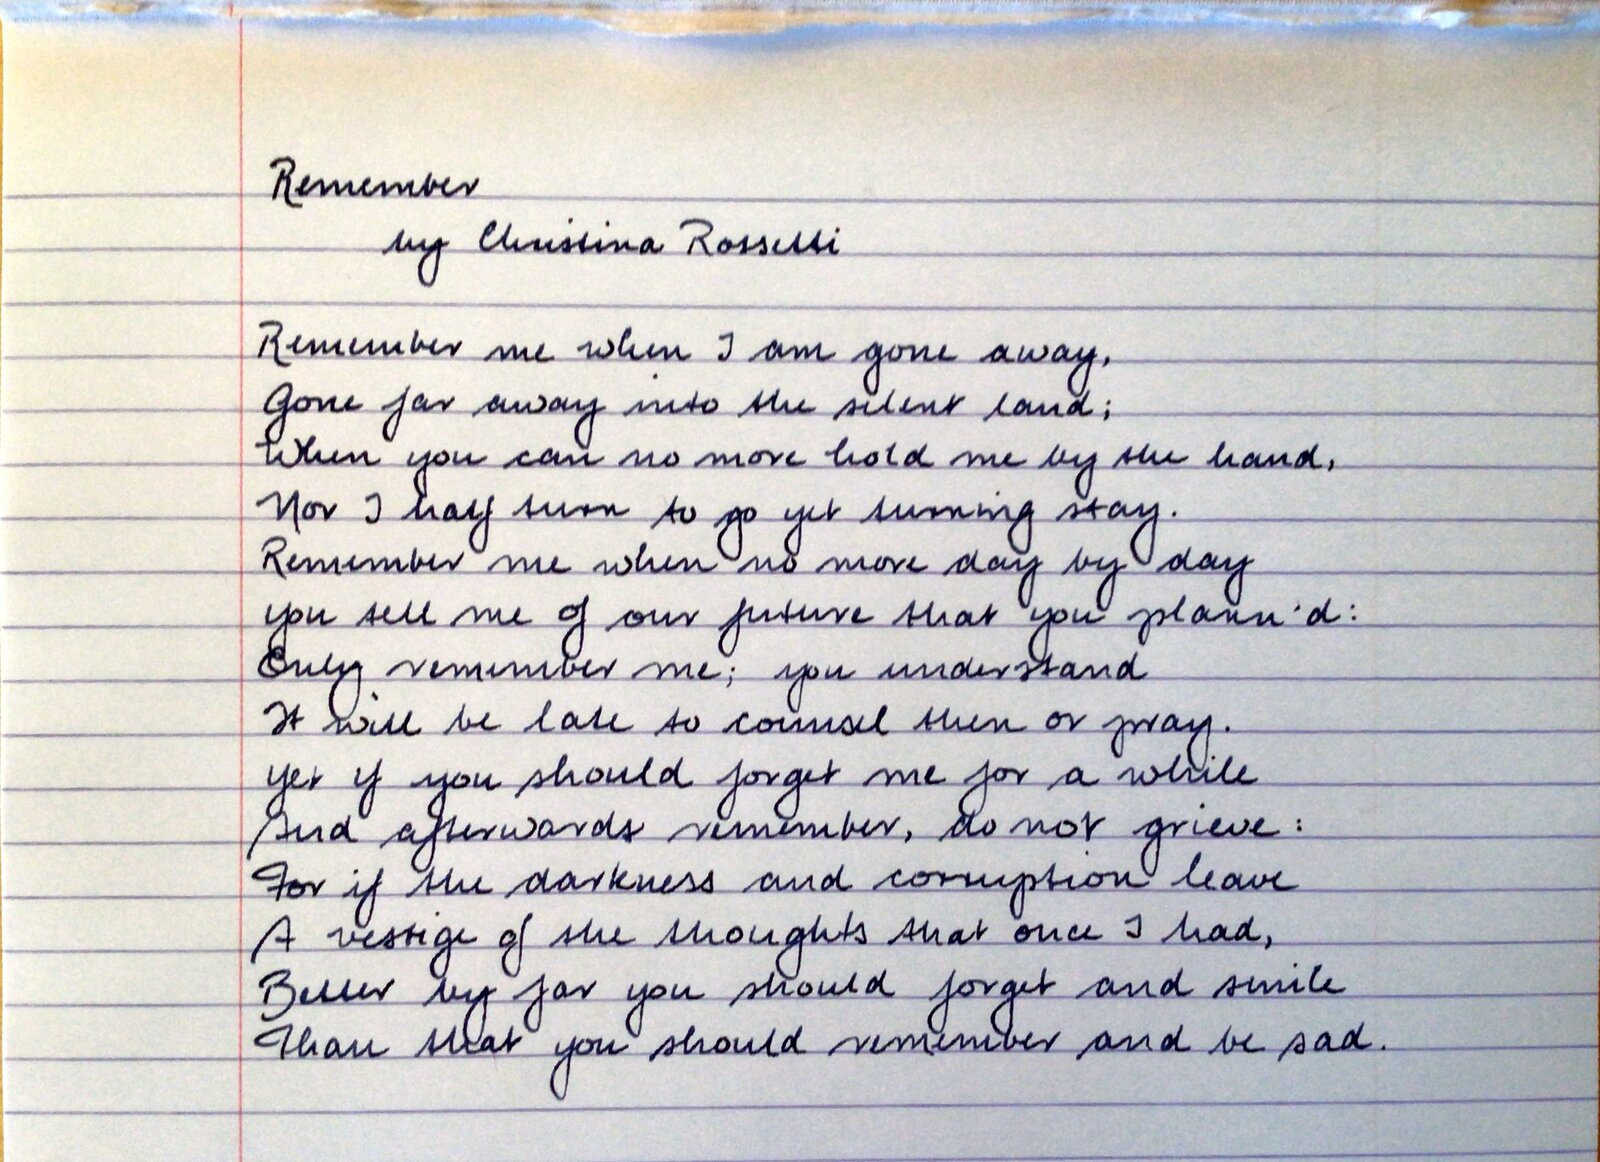 Remember
by Christina Rossetti
Remember me when I am gone away,
Gone far away into the silent land;
When you can no more hold me by the hand,
Nor I half turn to go yet turning stay.
Remember me when no more day by day
you tell me of our future that you plann'd:
Only remember me; you understand
It will be late to counsel then or pray.
yet if you should forget me for a while
And afterwards remember, do not grieve:
For if the darkness and corruption leave
A vestige of the thoughts that once I had,
Better by far you should forget and smile
Than that you should remember and be sad.